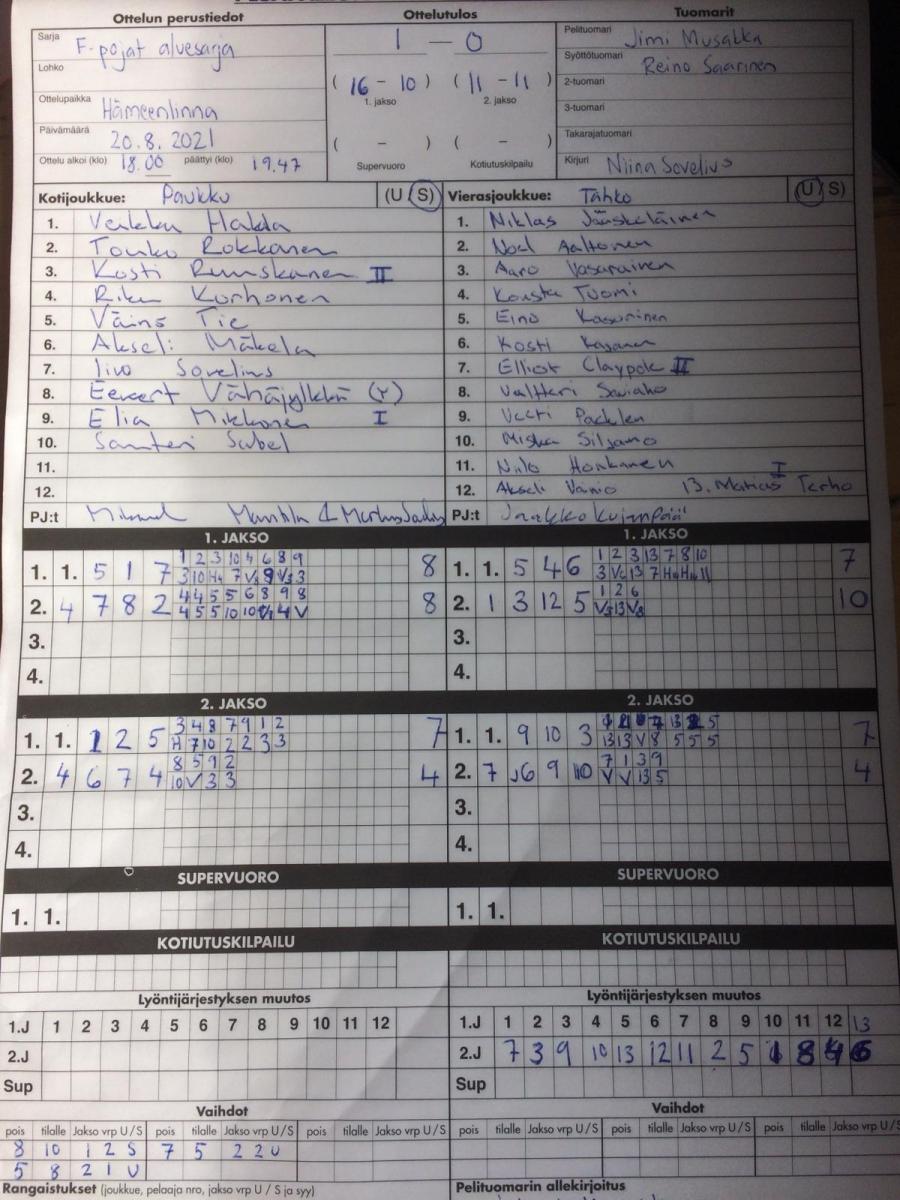 Ottelun perustiedot Ottelutulos Tuomarit
Sarja F-pojat aluesarja
1 — 0
Pelituomari Jimi Musakka
Lohko
Syöttötuomari Reino Saarinen
(16 - 10) (11 - 11)
1. jakso 2. jakso
2-tuomari
Ottelupaikka Hämeenlinna
3-tuomari
Päivämäärä 20.8.2021
( - ) ( - )
Takarajatuomari
Ottelu alkoi (klo) 18.00 päättyi (klo) 19.47
Supervuoro Kotiutuskilpailu
Kirjuri Niina Sovelius
Kotijoukkue: Paukku (U/S) Vierasjoukkue: Tahko (U/S)
1. Veikku Hakala 1. Niklas Jääskeläinen
2. Touko Rokkanen 2. Noel Aaltonen
3. Kosti Ruuskanen II 3. Aaro Vasarainen
4. Riku Korhonen 4. Kousta Tuomi
5. Väinö Tie 5. Eino Kasurinen
6. Akseli Mäkelä 6. Kosti
7. Iivo Sovelius 7. Elliot Claypole II
8. Eevert Vähäjylkkä (Y) 8. Valtteri
9. Elia Mikkonen I 9. Veeti
10. Santteri Sabel 10. Miska Siljamo
11. 11. Niilo Honkanen
12. 12. Akseli Vainio 13. Matias Terho I
PJ:t PJ:t Jaakko Kujanpää
1. JAKSO 1. JAKSO
1. 1. 5 1 7 1 2 3 10 4 6 8 9 8 1. 1. 5 4 6 1 2 3 13 7 8 10 7
2. 4 7 8 2 4 4 5 5 6 8 9 8 8 2. 1 3 12 5 1 2 6 10
3. 3.
4. 4.
2. JAKSO 2. JAKSO
1. 1. 1 2 5 3 4 8 7 9 1 2 7 1. 1. 9 10 3 7
H 7 10 2 2 3 3 13 13 V 8 5 5 5
2. 4 6 7 4 8 5 9 2 4 2. 7 6 9 10 7 1 3 9 4
10 V 3 3 V V 13 5
3. 3.
4. 4.
SUPERVUORO SUPERVUORO
1. 1. 1. 1.
KOTIUTUSKILPAILU KOTIUTUSKILPAILU
Lyöntijärjestyksen muutos Lyöntijärjestyksen muutos
1.J 1 2 3 4 5 6 7 8 9 10 11 12 1.J 1 2 3 4 5 6 7 8 9 10 11 12 13
2.J 2.J 7 3 9 10 13 12 11 2 5 1 8 4 6
Sup Sup
Vaihdot Vaihdot
pois tilalle Jakso vrp U/S pois tilalle Jakso vrp U/S pois tilalle Jakso vrp U/S pois tilalle Jakso vrp U/S pois tilalle Jakso vrp U/S pois tilalle Jakso vrp U/S
8 10 1 2 S 7 5 2 2 U
5 8 2 1 U
Rangaistukset (joukkue, pelaaja nro, jakso vrp U / S ja syy) Pelituomarin allekirjoitus